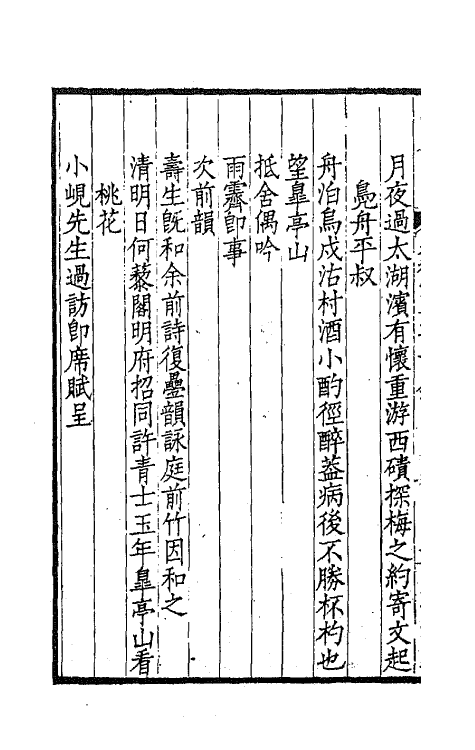 月夜過太湖濱有懷重游西磧探梅之約寄文起
鳧舟平叔
舟泊烏戍沽村酒小酌徑醉葢病後不勝杯杓也
望臯亭山
抵舍偶吟
雨霽即事
次前韻
壽生旣和余前詩復疊韻詠庭前竹因和之
清明日何藜閣明府招同許青士玉年臯亭山看
桃花
小峴先生過訪即席賦呈